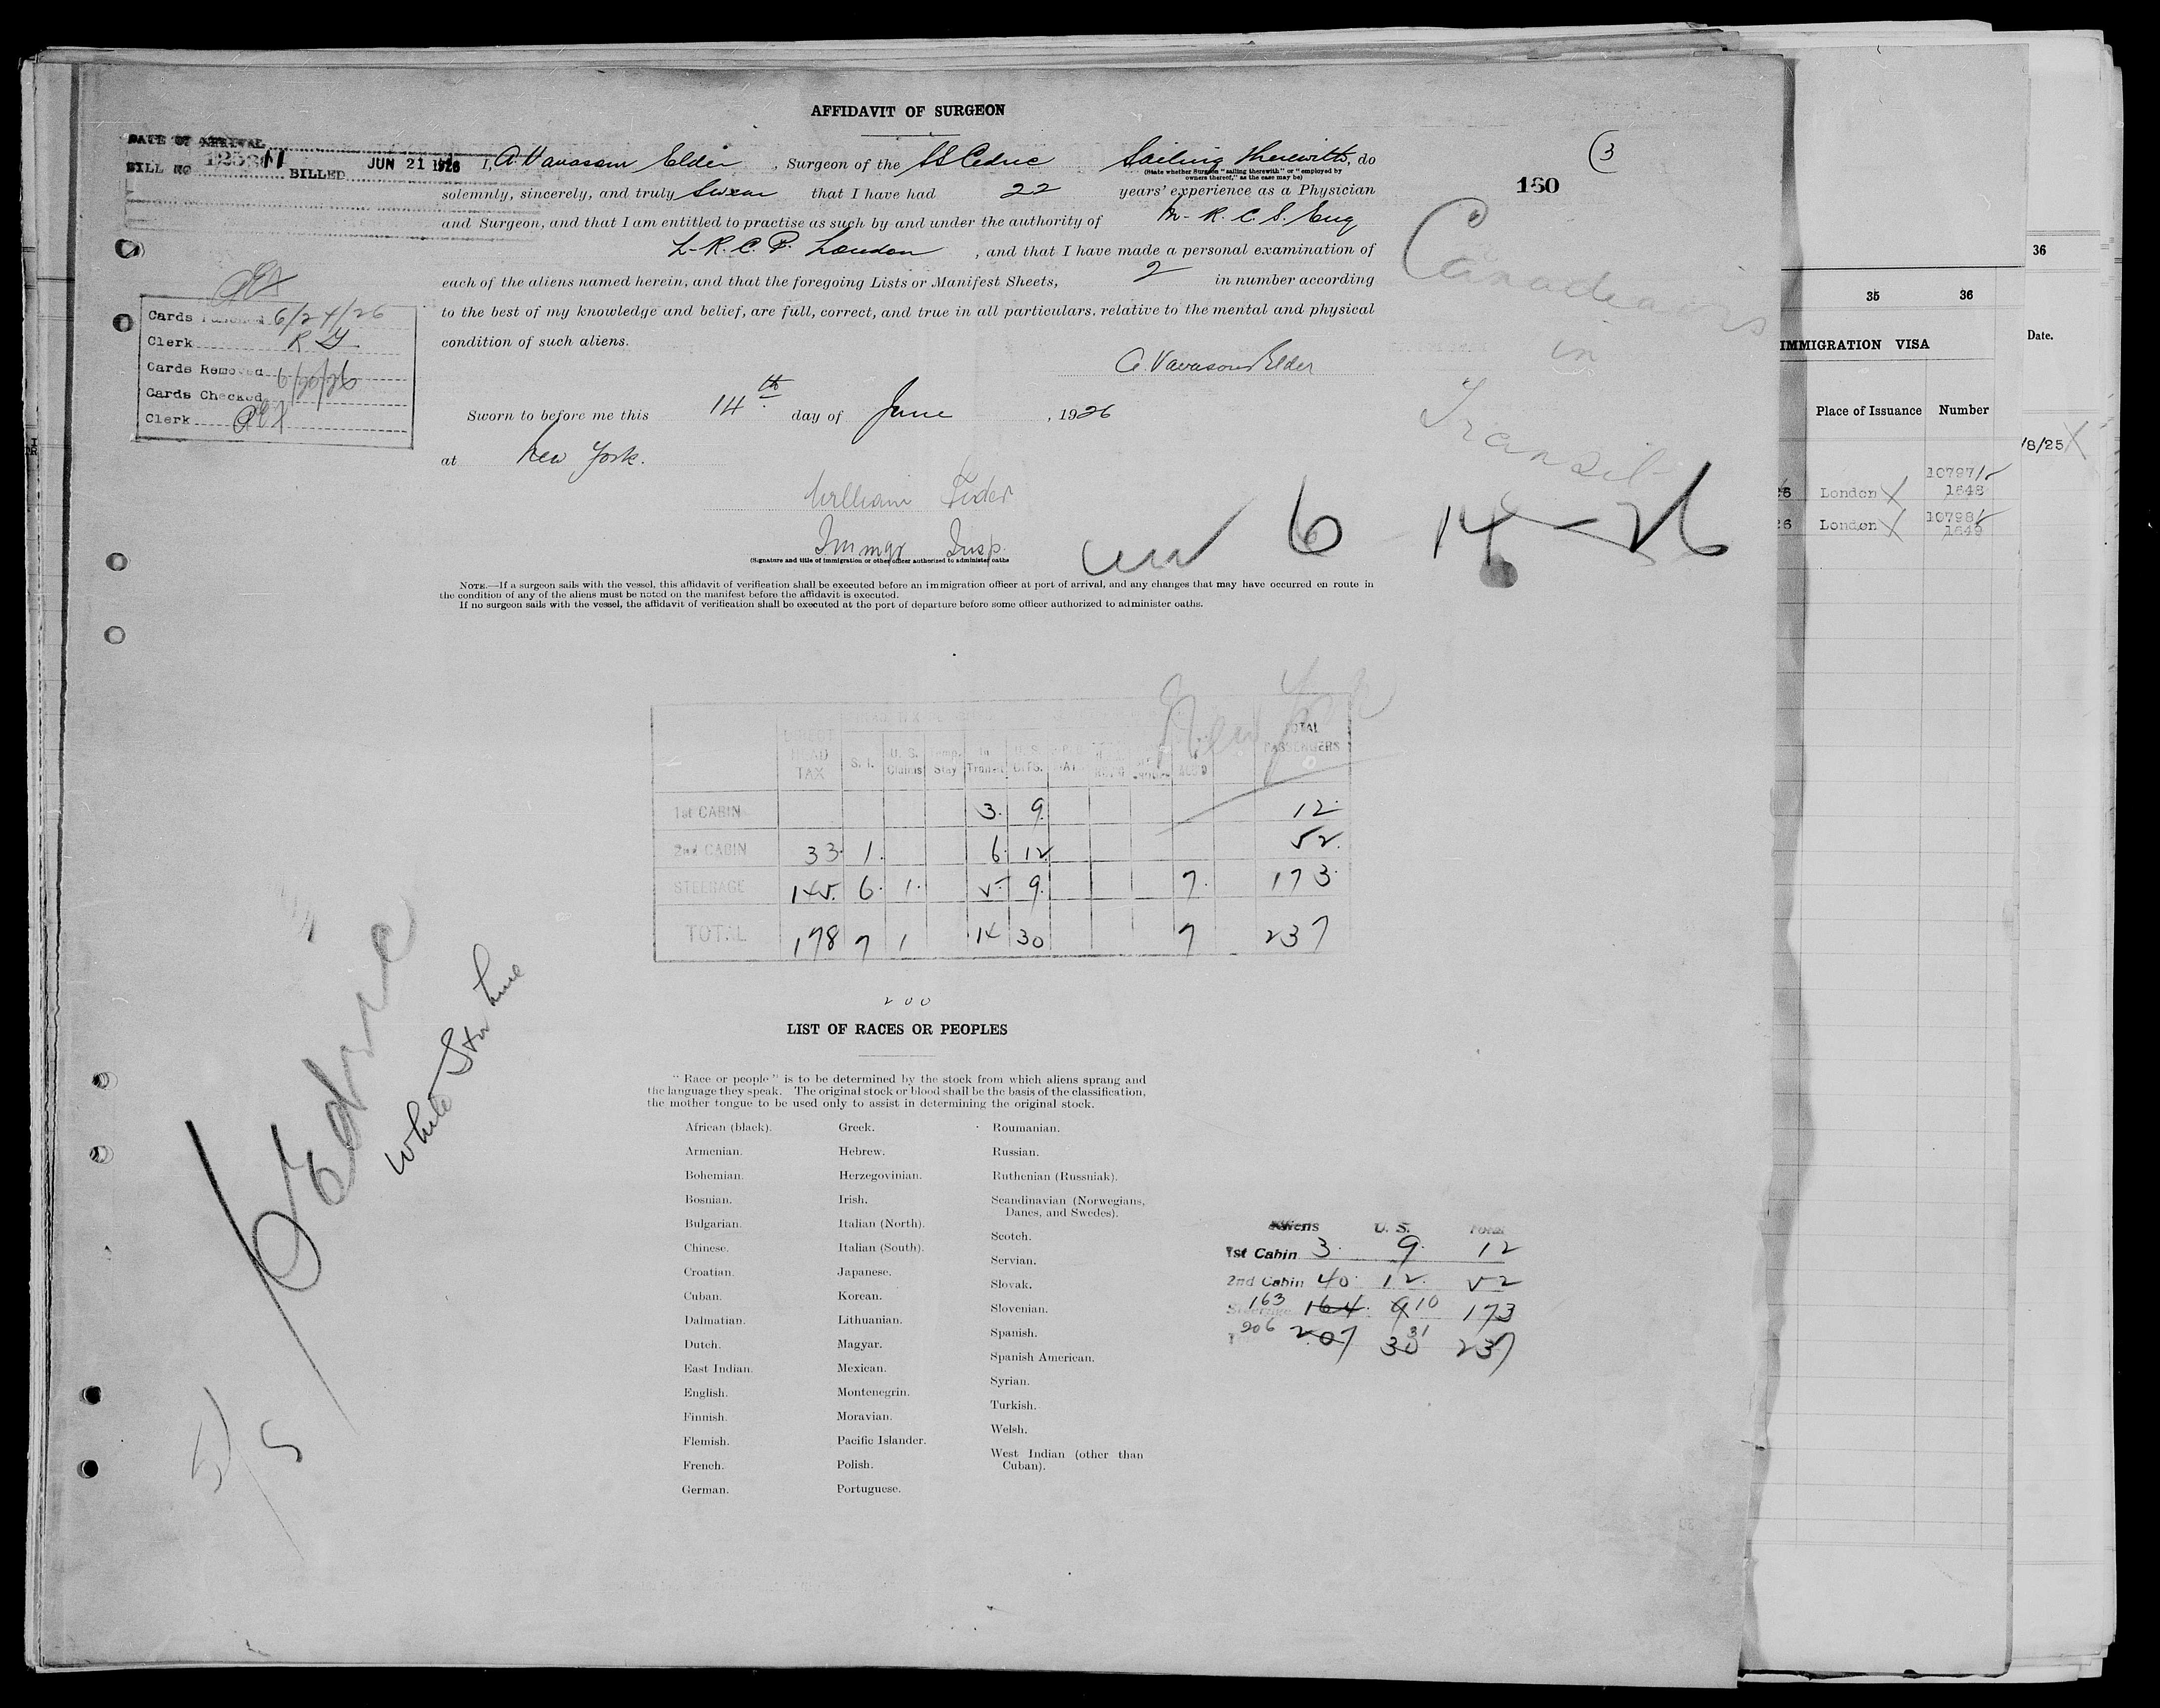 AFFIDAVIT OF SURGEON
DATE OF ARRIVAL
BILL NO BILLED JUN 21 1926
3
160
I, A. Vavasour Elder, Surgeon of the SS Cedric Sailing therewith, do
(State whether Surgeon "sailing therewith" or "employed by
owners thereof," as the case may be)
solemnly, sincerely, and truly swear that I have had 22 years' experience as a Physician
and Surgeon, and that I am entitled to practise as such by and under the authority of M. R. C. S. Eng
L. R. C. P. London, and that I have made a personal examination of
each of the aliens named herein, and that the foregoing Lists or Manifest Sheets, 2 in number according
to the best of my knowledge and belief, are full, correct, and true in all particulars. relative to the mental and physical
condition of such aliens.
A. Vavasour Elder
Sworn to before me this 14th day of June, 1926
at New York.
William
Immgr Insp.
(Signature and title of immigration or other officer authorized to administer oaths
Cards Punched 6/24/26
Clerk
Cards Removed
Cards Checked
Clerk
Canadians
in
Transit
6 - 14 - 26
NOTE.—If a surgeon sails with the vessel, this affidavit of verification shall be executed before an immigration officer at port of arrival, and any changes that may have occurred en route in
the condition of any of the aliens must be noted on the manifest before the affidavit is executed.
If no surgeon sails with the vessel, the affidavit of verification shall be executed at the port of departure before some officer authorized to administer oaths.
New York
HEAD TAX S. I. U. S. Claims Temp. Stay In Transit U. S. CITS. TOTAL PASSENGERS
1st CABIN 3. 9. 12.
2nd CABIN 33. 1. 6. 12. 52.
STEERAGE 145. 6. 1. 5. 9. 7. 173.
TOTAL 178 7 1 14 30 7 237
200
LIST OF RACES OR PEOPLES
"Race or people" is to be determined by the stock from which aliens sprang and
the language they speak. The original stock or blood shall be the basis of the classification,
the mother tongue to be used only to assist in determining the original stock.
African (black).
Armenian.
Bohemian.
Bosnian.
Bulgarian.
Chinese.
Croatian.
Cuban.
Dalmatian.
Dutch.
East Indian.
English.
Finnish.
Flemish.
French.
German.
Greek.
Hebrew.
Herzegovinian.
Irish.
Italian (North).
Italian (South).
Japanese.
Korean.
Lithuanian.
Magyar.
Mexican.
Montenegrin.
Moravian.
Pacific Islander.
Polish.
Portuguese.
Roumanian.
Russian.
Ruthenian (Russniak).
Scandinavian (Norwegians,
Danes, and Swedes).
Scotch.
Servian.
Slovak.
Slovenian.
Spanish.
Spanish American.
Syrian.
Turkish.
Welsh.
West Indian (other than
Cuban).
Aliens U. S. Total
1st Cabin 3. 9. 12
2nd Cabin 40. 12. 52
Steerage 163 164. 9 10 173
206 207 30 31 237
Cedric
White Star Line
35 36
IMMIGRATION VISA
Place of Issuance Number
London 10797 1648
26 London 10798 1649
36
Date.
/8/25